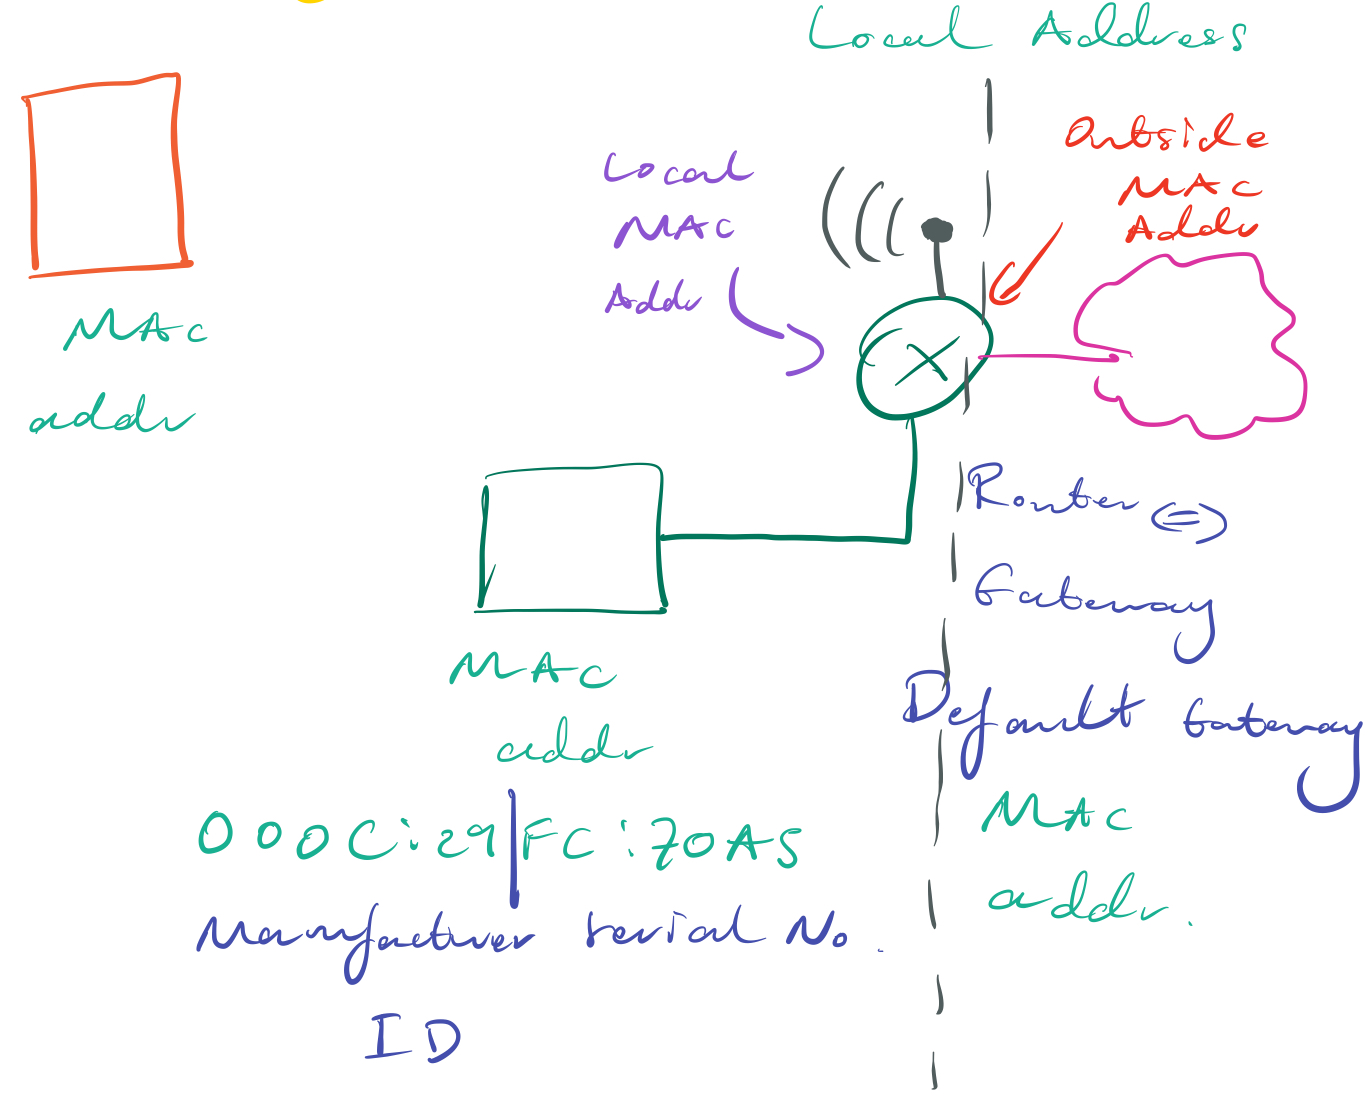 Local Address
Outside
MAC
Addr
Local
MAC
Addr
MAC
addr
Router <=>
Gateway
MAC
addr
Default Gateway
MAC
addr.
000C:29FC:70A5
Manufactuer serial No.
ID